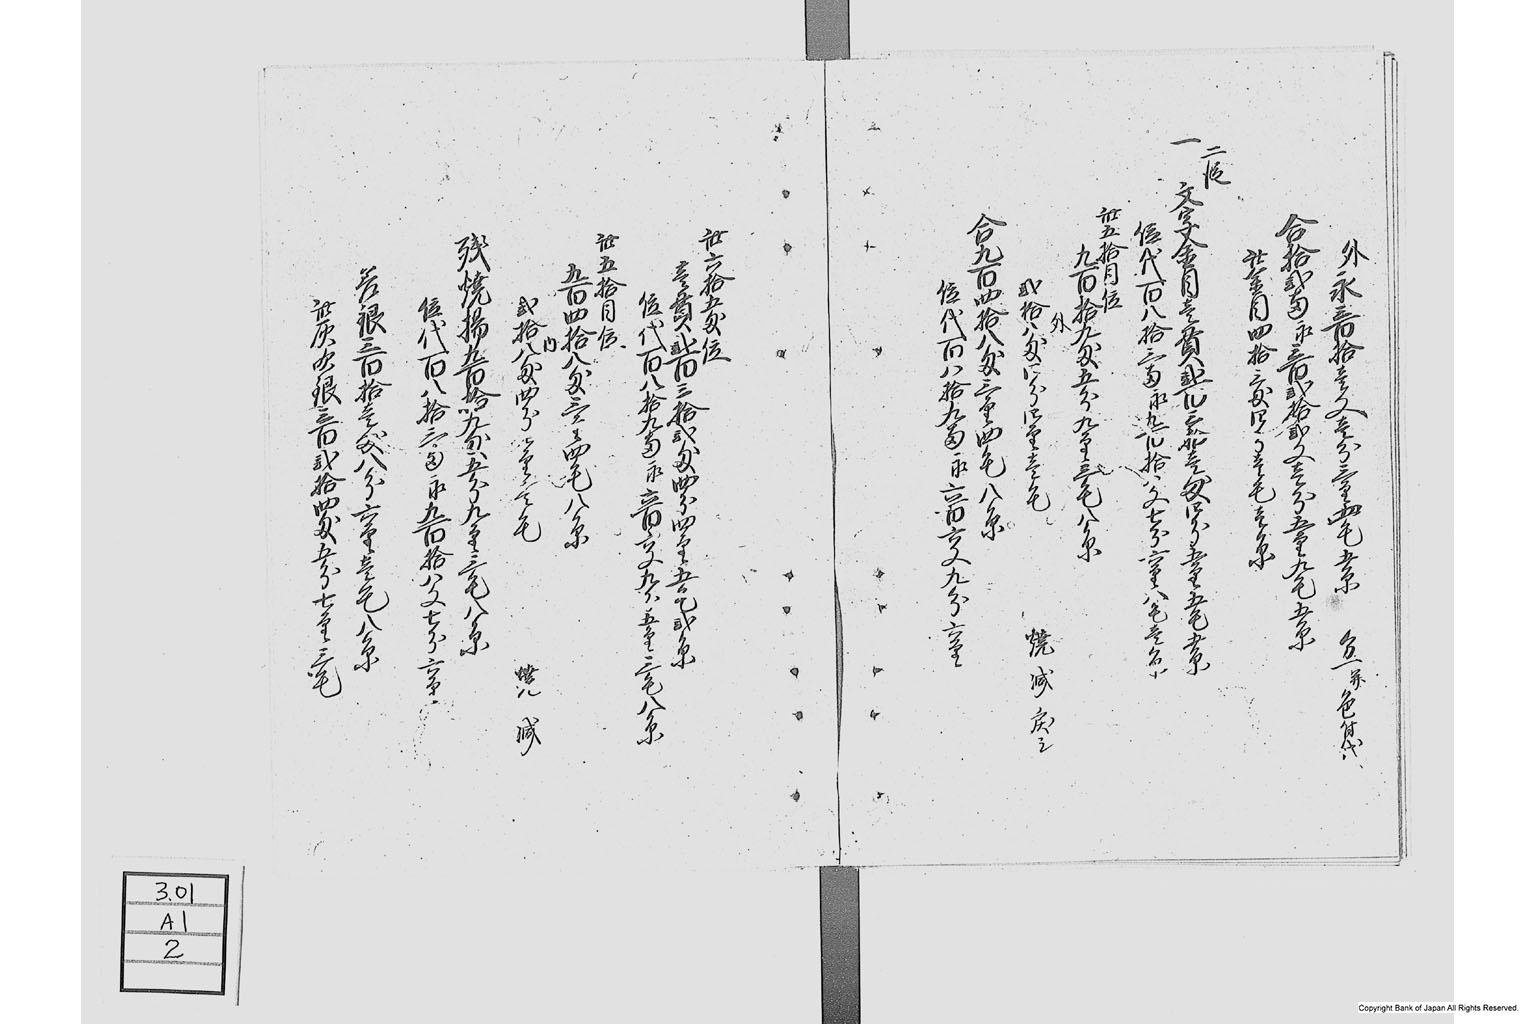 外
永三百拾壱文壱分三厘四毛五糸
色付代
合拾弐両永三百弐拾弐文壱分五厘九毛五糸
此金目四拾三匁四分壱毛壱糸
二段
一 文字金目壱貫弐百三拾壱匁四分五厘五毛五糸
位代百八拾三両永九百拾八文七分六厘八毛
此五拾目位
九百拾九匁五分九厘三毛八糸
外
弐拾八匁四分四厘壱毛 焼減戻シ
合九百四拾八匁三厘四毛八糸
位代百八拾九両永六百六文九分六厘
此六拾五匁位
壱貫弐百三拾弐匁四分四厘五毛弐糸
位代百八拾九両永六百六文九分五厘三毛八糸
此五拾目位
九百四拾八匁三厘四毛八糸
内
弐拾八匁四分四厘壱毛 焼減
残焼揚九百拾九匁五分九厘三毛八糸
位代百八拾三両永九百拾八文七分六厘
差銀三百拾壱匁八分六厘壱毛八糸
此灰吹銀三百弐拾四匁五分七厘三毛
3.01
A1
2
Copyright Bank of Japan All Rights Reserved.